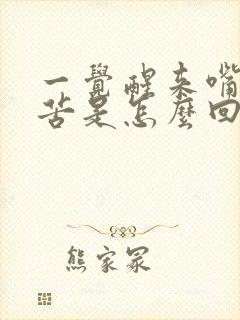 一覺醒來嘴
苦是怎麼回
熊家冢